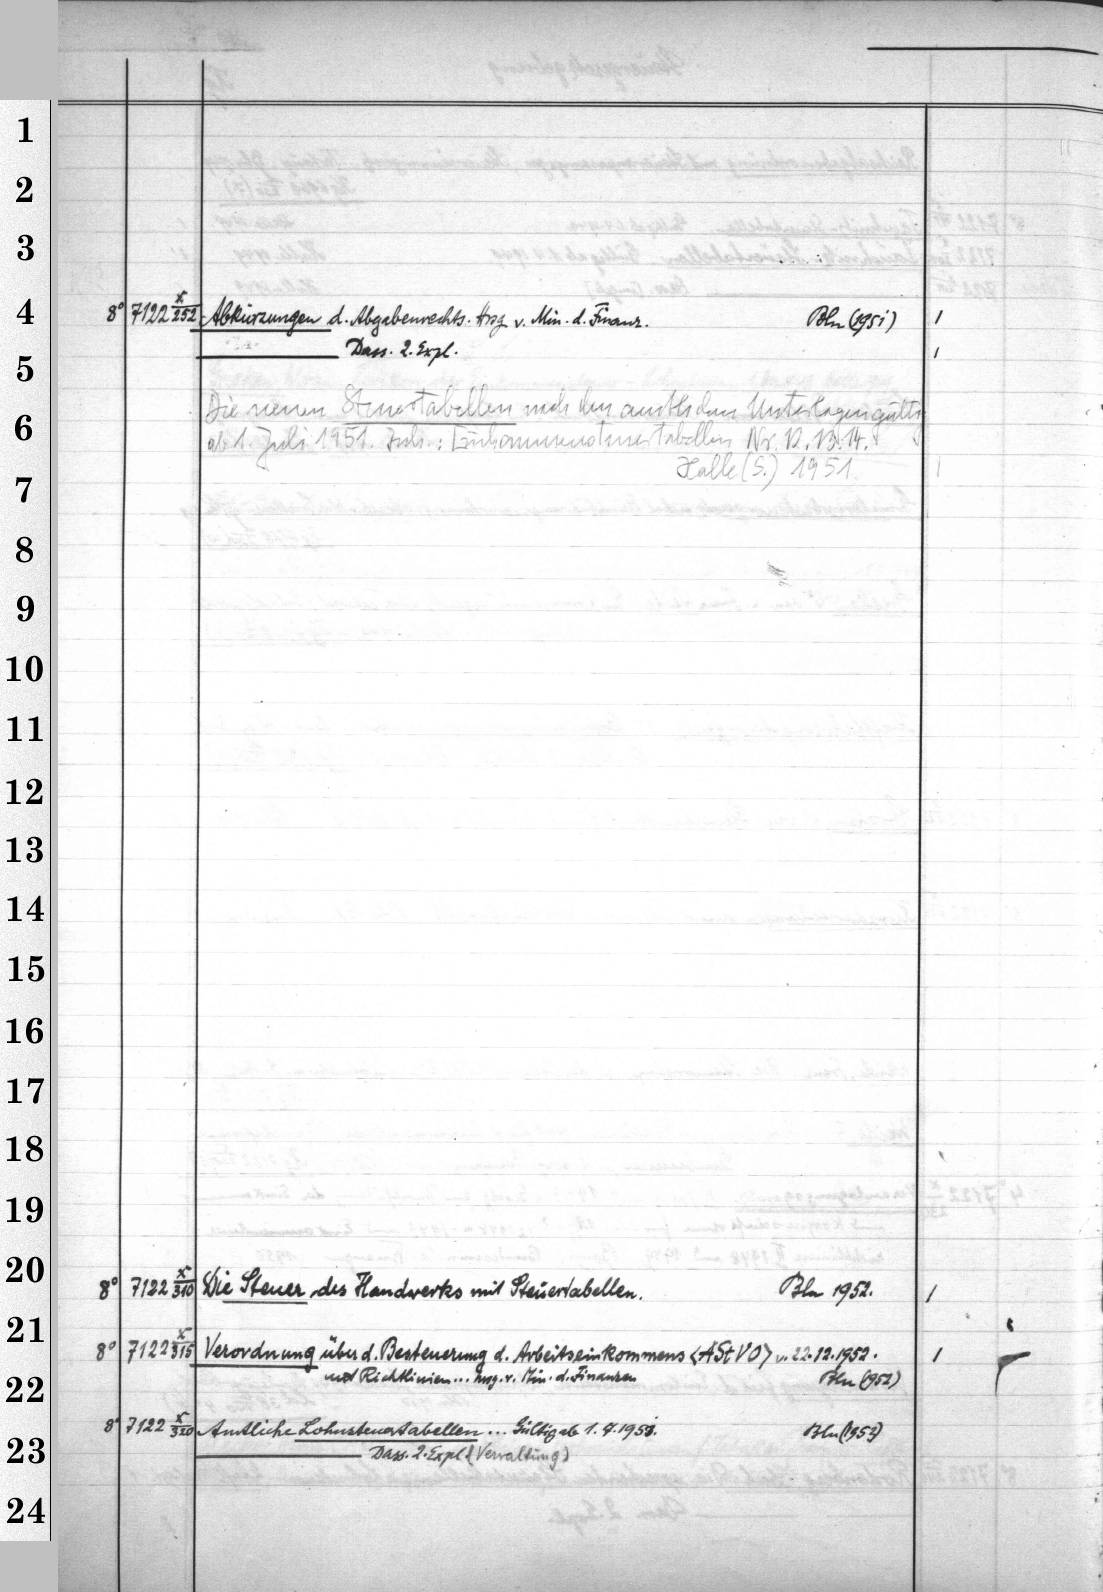 1
2
3
4
8° 7122 x/252 Abkürzungen d. Abgabenrechts. Hrsg. v. Min. d. Finanz. Bln (1951) 1
Dass. 2. Expl. 1
5
Die neuen Steuertabellen nach den amtlichen Unterlagen gültig
6
ab 1. Juli 1951. Inh.: Einkommensteuertabellen Nr. 12. 13. 14.
Halle (S.) 1951. 1
7
8
9
10
11
12
13
14
15
16
17
18
19
20
8° 7122 x/310 Die Steuer des Handwerks mit Steuertabellen. Bln 1952. 1
21
8° 7122 x/315 Verordnung über d. Besteuerung d. Arbeitseinkommens (AStVO) v. 22.12.1952. 1
22
und Richtlinien... Hrsg. v. Min. d. Finanzen Bln (1952)
8° 7122 x/320 Amtliche Lohnsteuertabellen ... Gültig ab Bln (1953)
23
Dass. 2. Expl. (Verwaltung)
24